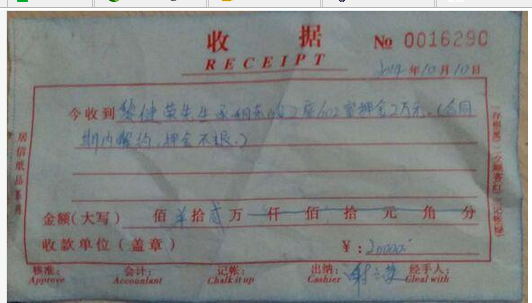 收 据 No 0016290
RECEIPT
年10月10日
今收到黎健荣先生承租东的2座602室押金2万元.(合同
期内解约,押金不退.)
金额(大写) 佰 拾贰万 仟 佰 拾 元 角 分
收款单位(盖章) ¥:20000
核准: 会计: 记帐: 出纳: 经手人:
Approve Accountant Chalk it up Cashier Cleal with
居信纸品系列